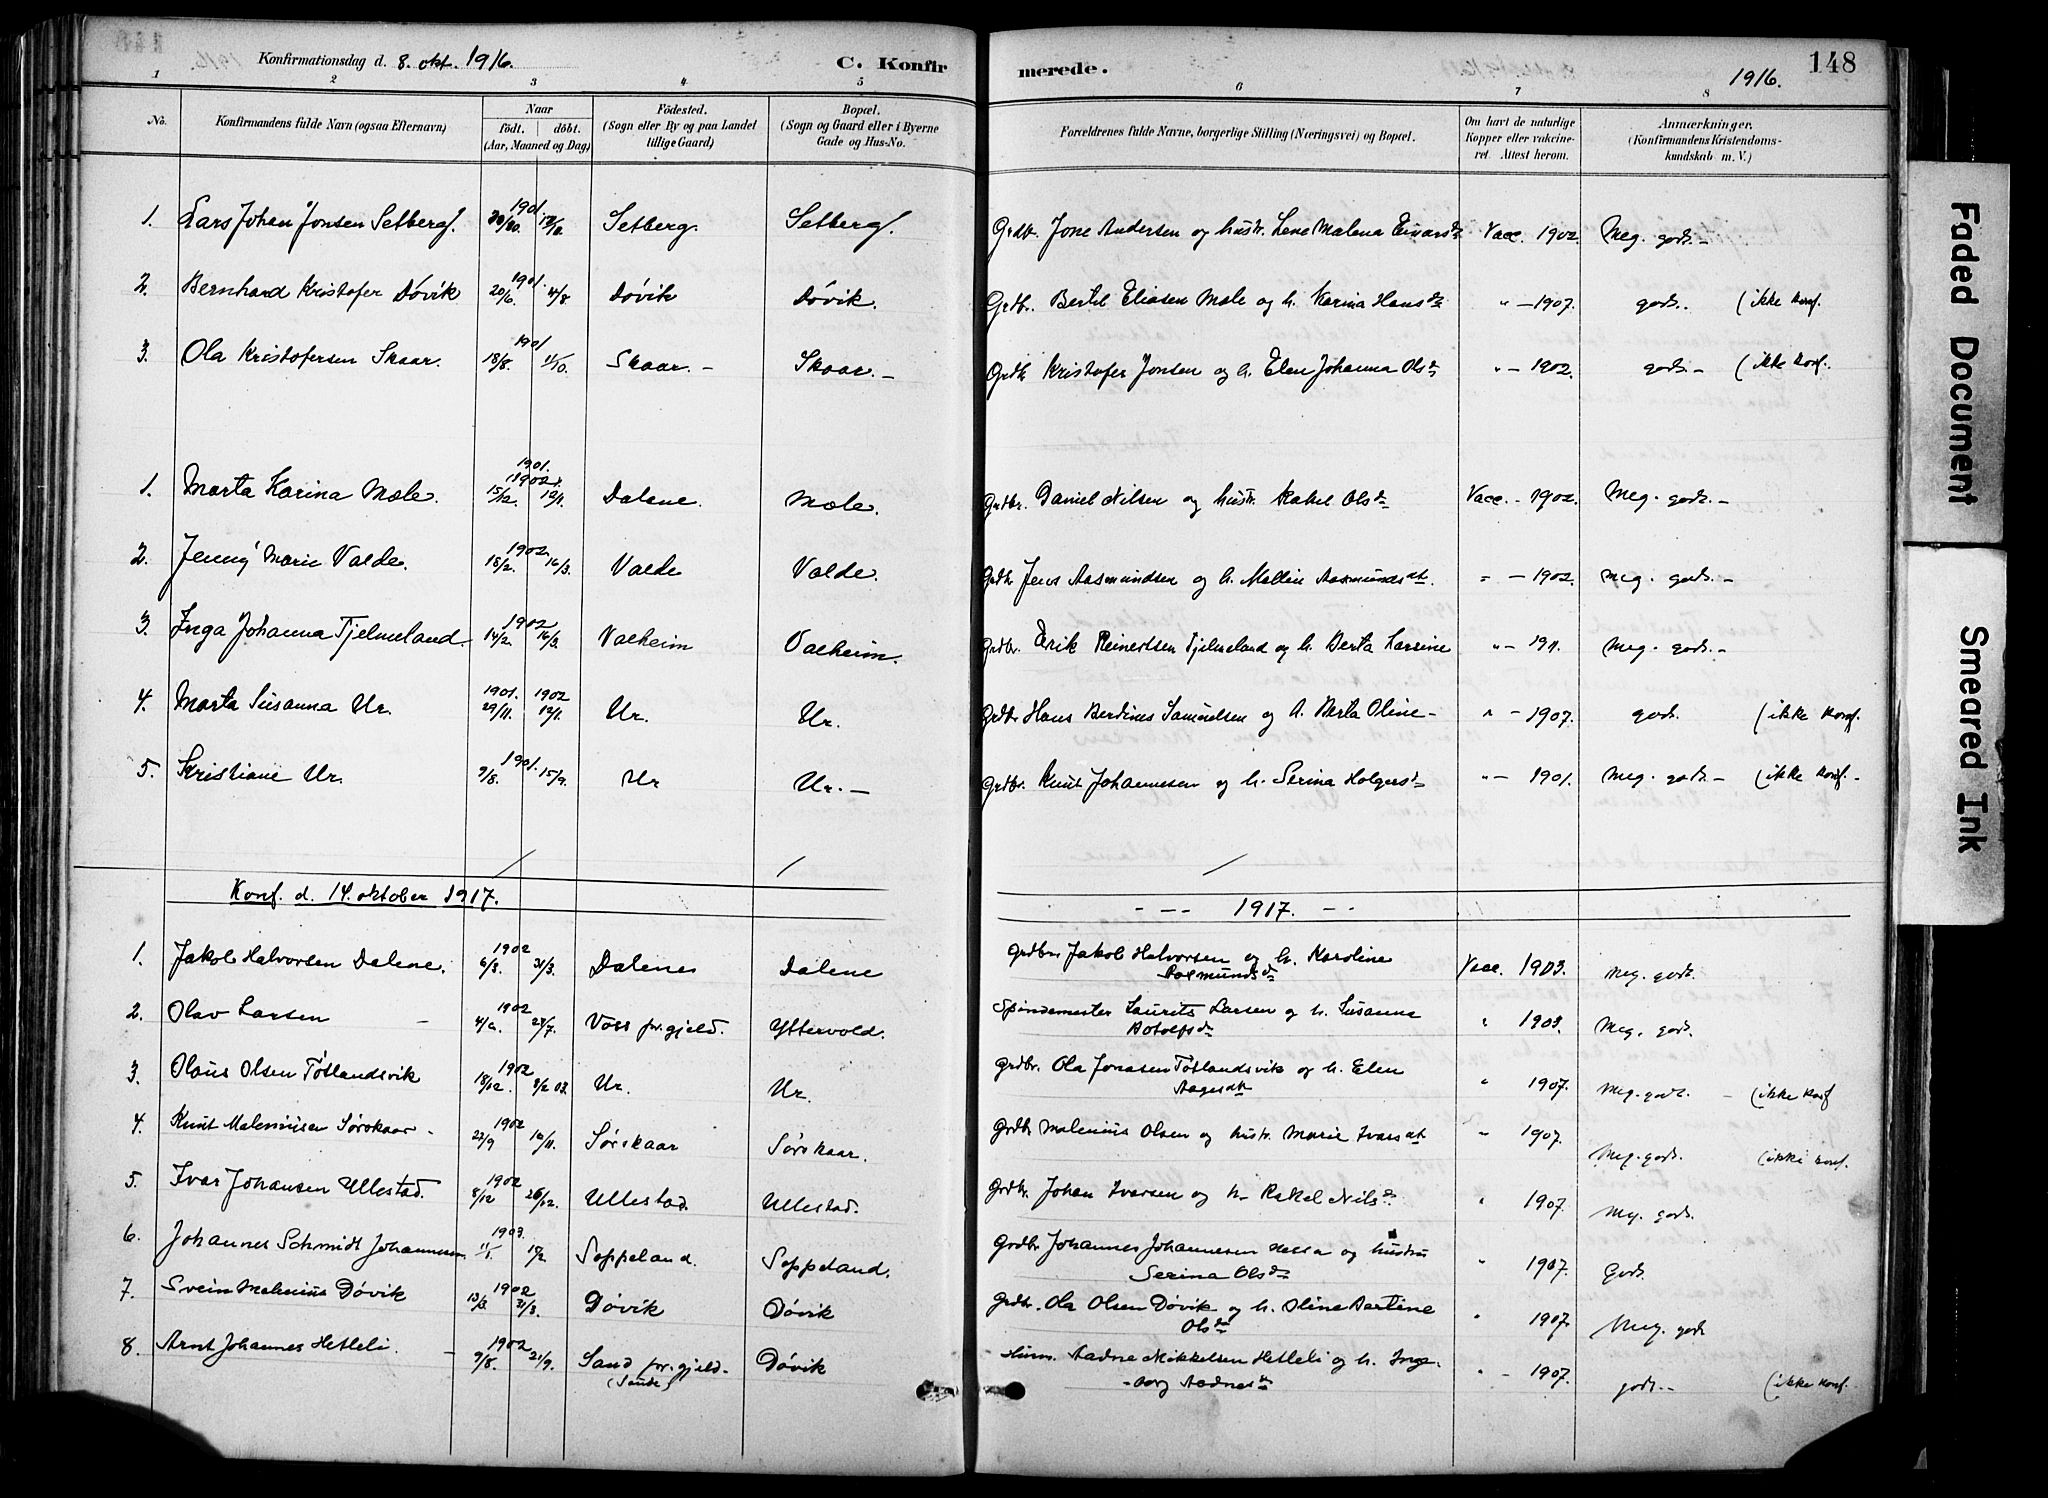 148
Konfirmationsdag d. 8. okt. 1916.
C. Konfirmerede.
1916.
1 2 3 4 5 6 7 8
No.
Konfirmandens fulde Navn (ogsaa Efternavn)
Naar
födt. döbt.
(Aar, Maaned og Dag)
Födested.
(Sogn eller By og paa Landet
tillige Gaard)
Bopæl.
(Sogn og Gaard eller i Byerne
Gade og Hus-No.
Forældrenes fulde Navne, borgerlige Stilling (Næringsvei) og Bopæl.
Om havt de naturlige
Kopper eller vakcine-
ret. Attest herom.
Anmærkninger.
(Konfirmandens Kristendoms-
kundskab m. V.)
1. Lars Johan Jonsen Setberg. 1901 Setberg. Setberg. Grdbr. Jone Andersen og hustr. Lene Malena Vacc. 1902. Meg. godt. –
2. Bernhard Kristofer Døvik 1901. 20/6. 4/8 Døvik Døvik. Grdbr. Bertel Eliasen Mæle og h. Karina Hansdr " – 1907. godt. (ikke konf.
3. Ola Kristofersen Skaar. 1901 18/8. 11/10. Skaar. – Skaar. – Grdbr Kristofer Jonsen og h. Elen Johanna Olsdr " – 1902. godt. – (ikke konf.
1. Marta Karina Mæle. 1901. 1902. 15/12. 12/1. Dalene. Mæle. Grdbr. Daniel Nilsen og hustr. Rakel Olsdr Vacc. – 1902. Meg. godt. –
2. Jenny Marie Valde. 1902. 15/2. 16/3. Valde Valde. Grdbr Jens Aasmundsen og h. Malline Aasmundsdt. " – 1902. Meg. godt. –
3. Inga Johanna Tjelmeland. 1902 14/2. 16/3. Valheim Valheim. Grdbr. Erik Reinertsen Tjelmeland og h. Berta Karsine " – 1911. Meg. godt. –
4. Marta Susanna Ur. 1901. 1902 29/11. 12/1. Ur. Ur. Grdbr Hans Berdines Samuelsen og h. Berta Oline – " – 1907. godt. (ikke konf.
5. Kristiane Ur. 1901. 9/8. 15/9. Ur Ur. – Grdbr. Knut Johannesen og h. Serina Holgersdr " – 1901. Meg. godt – (ikke konf. –
Konf. d. 14. oktober 1917.
– – – 1917. – –
1. Jakob Halvorsen Dalene. 1902 6/3. 31/3. Dalene Dalene Grdbr Jakob Halvorsen og h. Karoline Vacc. 1903. Meg. godt.
Aasmundsdr
2. Olav Larsen – 1902 27/7. Voss pr.gjeld. Yttervold. Spindemester Laurits Larsen og h. Susanna " 1903. Meg. godt.
Botolfsdr
3. Olaus Olsen Tøtlandsvik 1902 18/12. 8/2 03. Ur. Ur. Grdbr. Ola Jonasen Tøtlandsvik og h. Elen " 1907. Meg. godt. – (ikke konf
Aagesdt
4. Knut Maleniusen Sørskaar – 1902 22/9 16/11. Sørskaar Sørskaar. Grdbr Malenius Olsen og hustr. Marie Ivarsdt " 1907. Meg. godt. (ikke konf.
5. Ivar Johansen Ullestad. 1902 8/12 26/12. Ullestad. Ullestad. Grdbr. Johan Ivarsen og h. Rakel Nilsdr " 1907. Meg. godt.
6. Johannes Schmidt Johannesen 1903. 11/1. 15/2 Soppeland. Soppeland. Grdbr Johannes Johannesen Hessa og hustru " 1907. Godt.
Serina Olsdr
7. Svein Malenius Døvik 1902 13/3. 31/3. Døvik Døvik Grdbr. Ola Olsen Døvik og h. Oline Bertine " 1907. Meg. godt
Olsdr
8. Arnt Johannes Hetleli. – 1902 9/8. 21/9. Sand pr.gjeld. Døvik Husm. Aadne Mikkelsen Hetleli og h. Inge- " – 1907. godt. – (ikke konf.
(Sande) -borg Aadnesdr
Faded Document
Smeared Ink